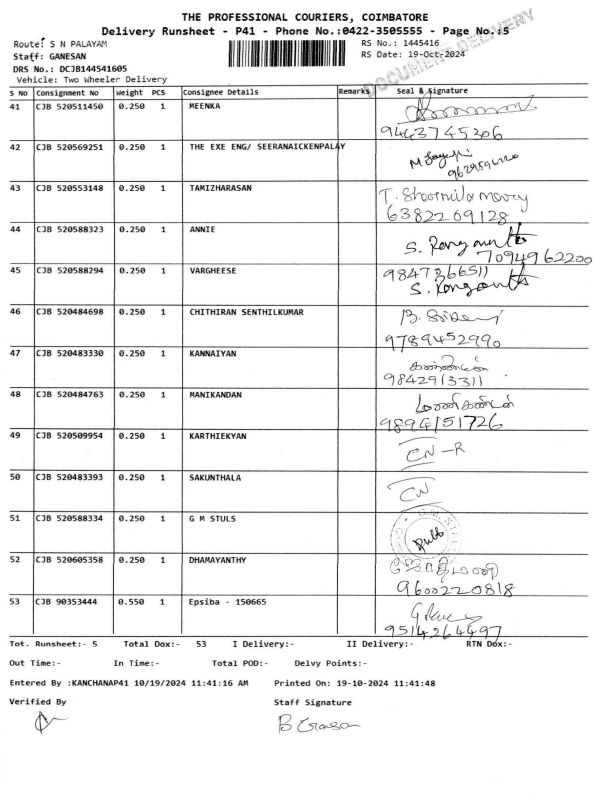 THE PROFESSIONAL COURIERS, COIMBATORE
Delivery Runsheet - P41 - Phone No.:0422-3505555 - Page No.:5
DOCUMENT DELIVERY
Route: S N PALAYAM
RS No.: 1445416
Staff: GANESAN
RS Date: 19-Oct-2024
DRS No.: DCJB144541605
Vehicle: Two Wheeler Delivery
S No Consignment No Weight PCS Consignee Details Remarks Seal & Signature
41 CJB 520511450 0.250 1 MEENKA
9443745306
42 CJB 520569251 0.250 1 THE EXE ENG/ SEERANAICKENPALAY
43 CJB 520553148 0.250 1 TAMIZHARASAN
6382209128
44 CJB 520588323 0.250 1 ANNIE
7094962200
45 CJB 520588294 0.250 1 VARGHEESE
46 CJB 520484698 0.250 1 CHITHIRAN SENTHILKUMAR
9789452990
47 CJB 520483330 0.250 1 KANNAIYAN
9842913311
48 CJB 520484763 0.250 1 MANIKANDAN
மணிகண்டன்
9894151726
49 CJB 520509954 0.250 1 KARTHIEKYAN
CN -R
50 CJB 520483393 0.250 1 SAKUNTHALA
CN
51 CJB 520588334 0.250 1 G M STULS
52 CJB 520605358 0.250 1 DHAMAYANTHY
ஜோதிமணி
9600220818
53 CJB 90353444 0.550 1 Epsiba - 150665
9514264497
Tot. Runsheet:- 5 Total Dox:- 53 I Delivery:- II Delivery:- RTN Dox:-
Out Time:- In Time:- Total POD:- Delvy Points:-
Entered By :KANCHANAP41 10/19/2024 11:41:16 AM Printed On: 19-10-2024 11:41:48
Verified By Staff Signature